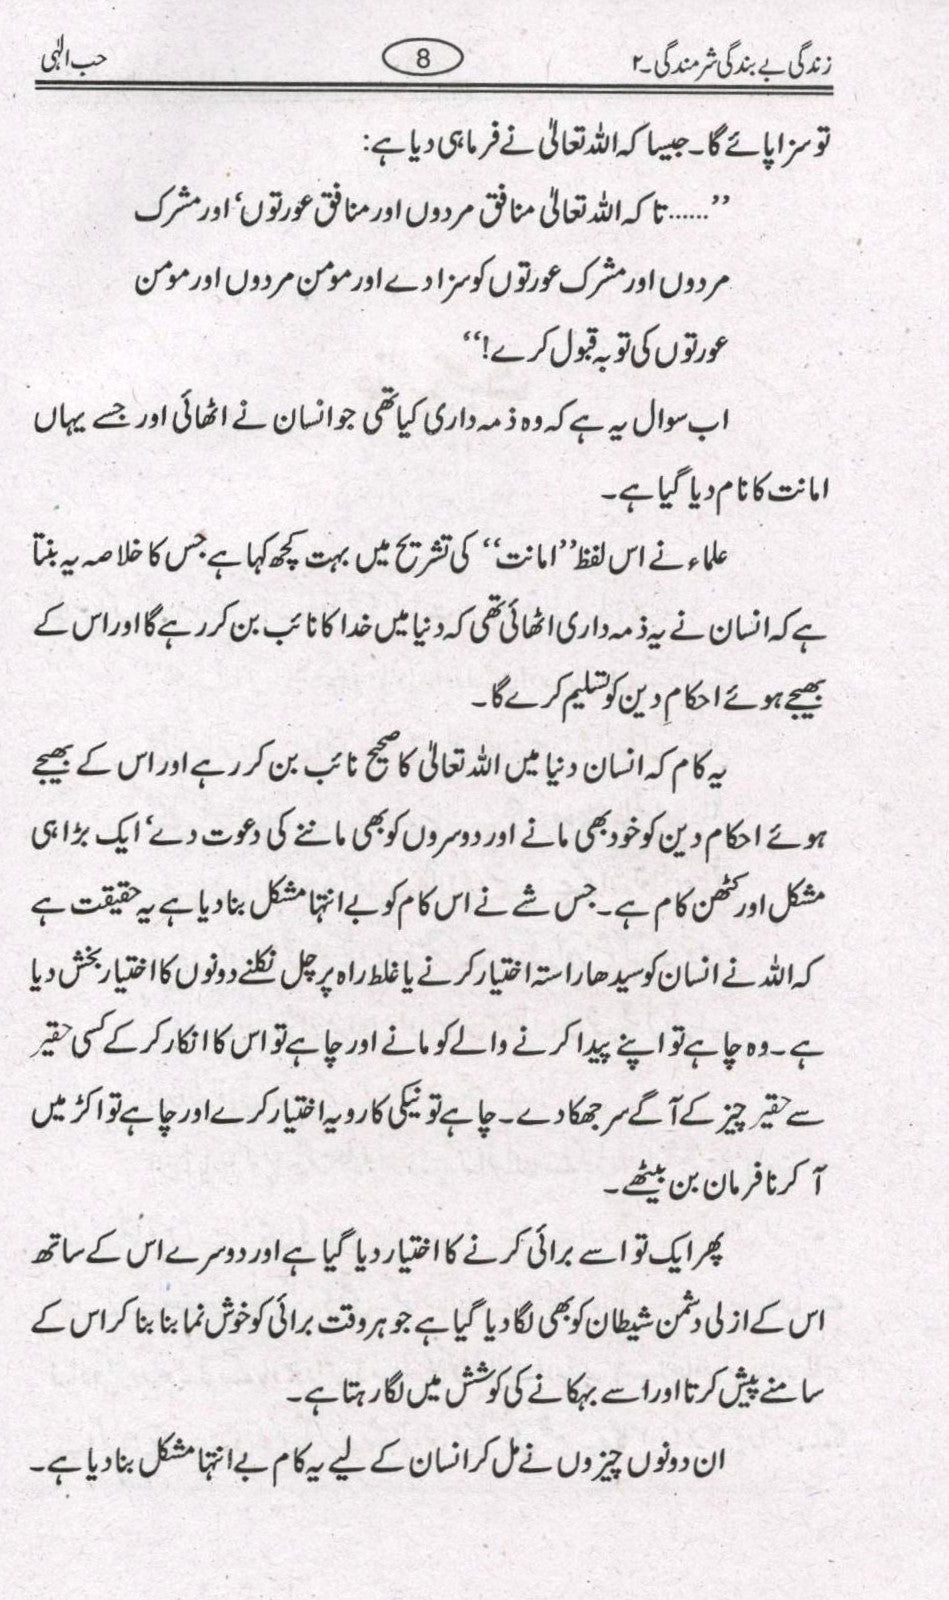 زندگی بے بندگی شرمندگی۔۲ 8 حب الٰہی
تو سزا پائے گا۔ جیسا کہ اللہ تعالیٰ نے فرما ہی دیا ہے:
’’......تا کہ اللہ تعالیٰ منافق مردوں اور منافق عورتوں‘ اور مشرک
مردوں اور مشرک عورتوں کو سزا دے اور مومن مردوں اور مومن
عورتوں کی توبہ قبول کرے!‘‘
اب سوال یہ ہے کہ وہ ذمہ داری کیا تھی جو انسان نے اٹھائی اور جسے یہاں
امانت کا نام دیا گیا ہے۔
علماء نے اس لفظ ’’امانت‘‘ کی تشریح میں بہت کچھ کہا ہے جس کا خلاصہ یہ بنتا
ہے کہ انسان نے یہ ذمہ داری اٹھائی تھی کہ دنیا میں خدا کا نائب بن کر رہے گا اور اس کے
بھیجے ہوئے احکام دین کو تسلیم کرے گا۔
یہ کام کہ انسان دنیا میں اللہ تعالیٰ کا صحیح نائب بن کر رہے اور اس کے بھیجے
ہوئے احکام دین کو خود بھی مانے اور دوسروں کو بھی ماننے کی دعوت دے‘ ایک بڑا ہی
مشکل اور کٹھن کام ہے۔ جس شے نے اس کام کو بے انتہا مشکل بنا دیا ہے یہ حقیقت ہے
کہ اللہ نے انسان کو سیدھا راستہ اختیار کرنے یا غلط راہ پر چل نکلنے دونوں کا اختیار بخش دیا
ہے۔ وہ چاہے تو اپنے پیدا کرنے والے کو مانے اور چاہے تو اس کا انکار کر کے کسی حقیر
سے حقیر چیز کے آگے سر جھکا دے۔ چاہے تو نیکی کا رویہ اختیار کرے اور چاہے تو اکڑ میں
آ کر نافرمان بن بیٹھے۔
پھر ایک تو اسے برائی کرنے کا اختیار دیا گیا ہے اور دوسرے اس کے ساتھ
اس کے ازلی دشمن شیطان کو بھی لگا دیا گیا ہے جو ہر وقت برائی کو خوش نما بنا بنا کر اس کے
سامنے پیش کرتا اور اسے بہکانے کی کوشش میں لگا رہتا ہے۔
ان دونوں چیزوں نے مل کر انسان کے لیے یہ کام بے انتہا مشکل بنا دیا ہے۔